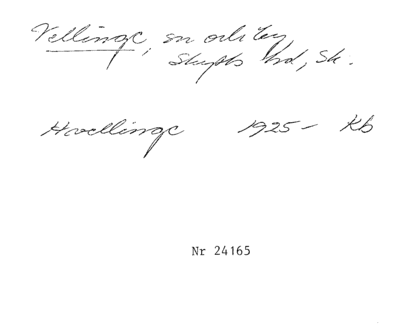 Vellinge, sn och tg
Skytts hd, Sk.
Hvellinge 1925 - Kb
Nr 24165